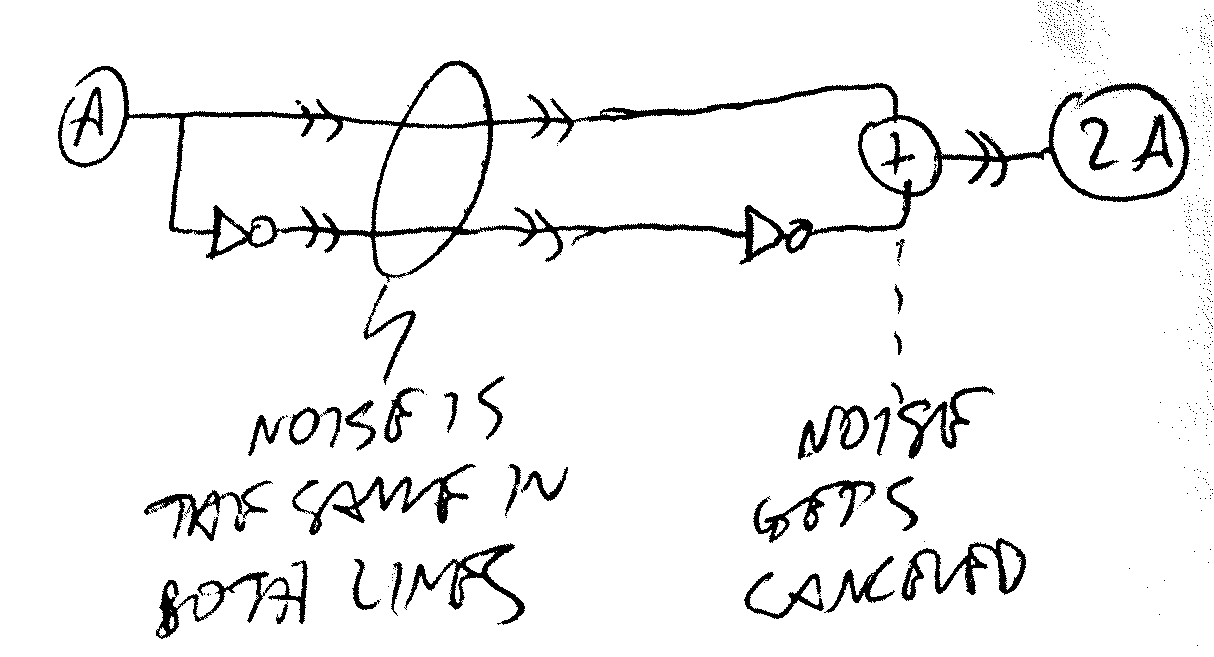 A
+
2A
NOISE IS
THE SAME IN
BOTH LINES
NOISE
GETS
CANCELED